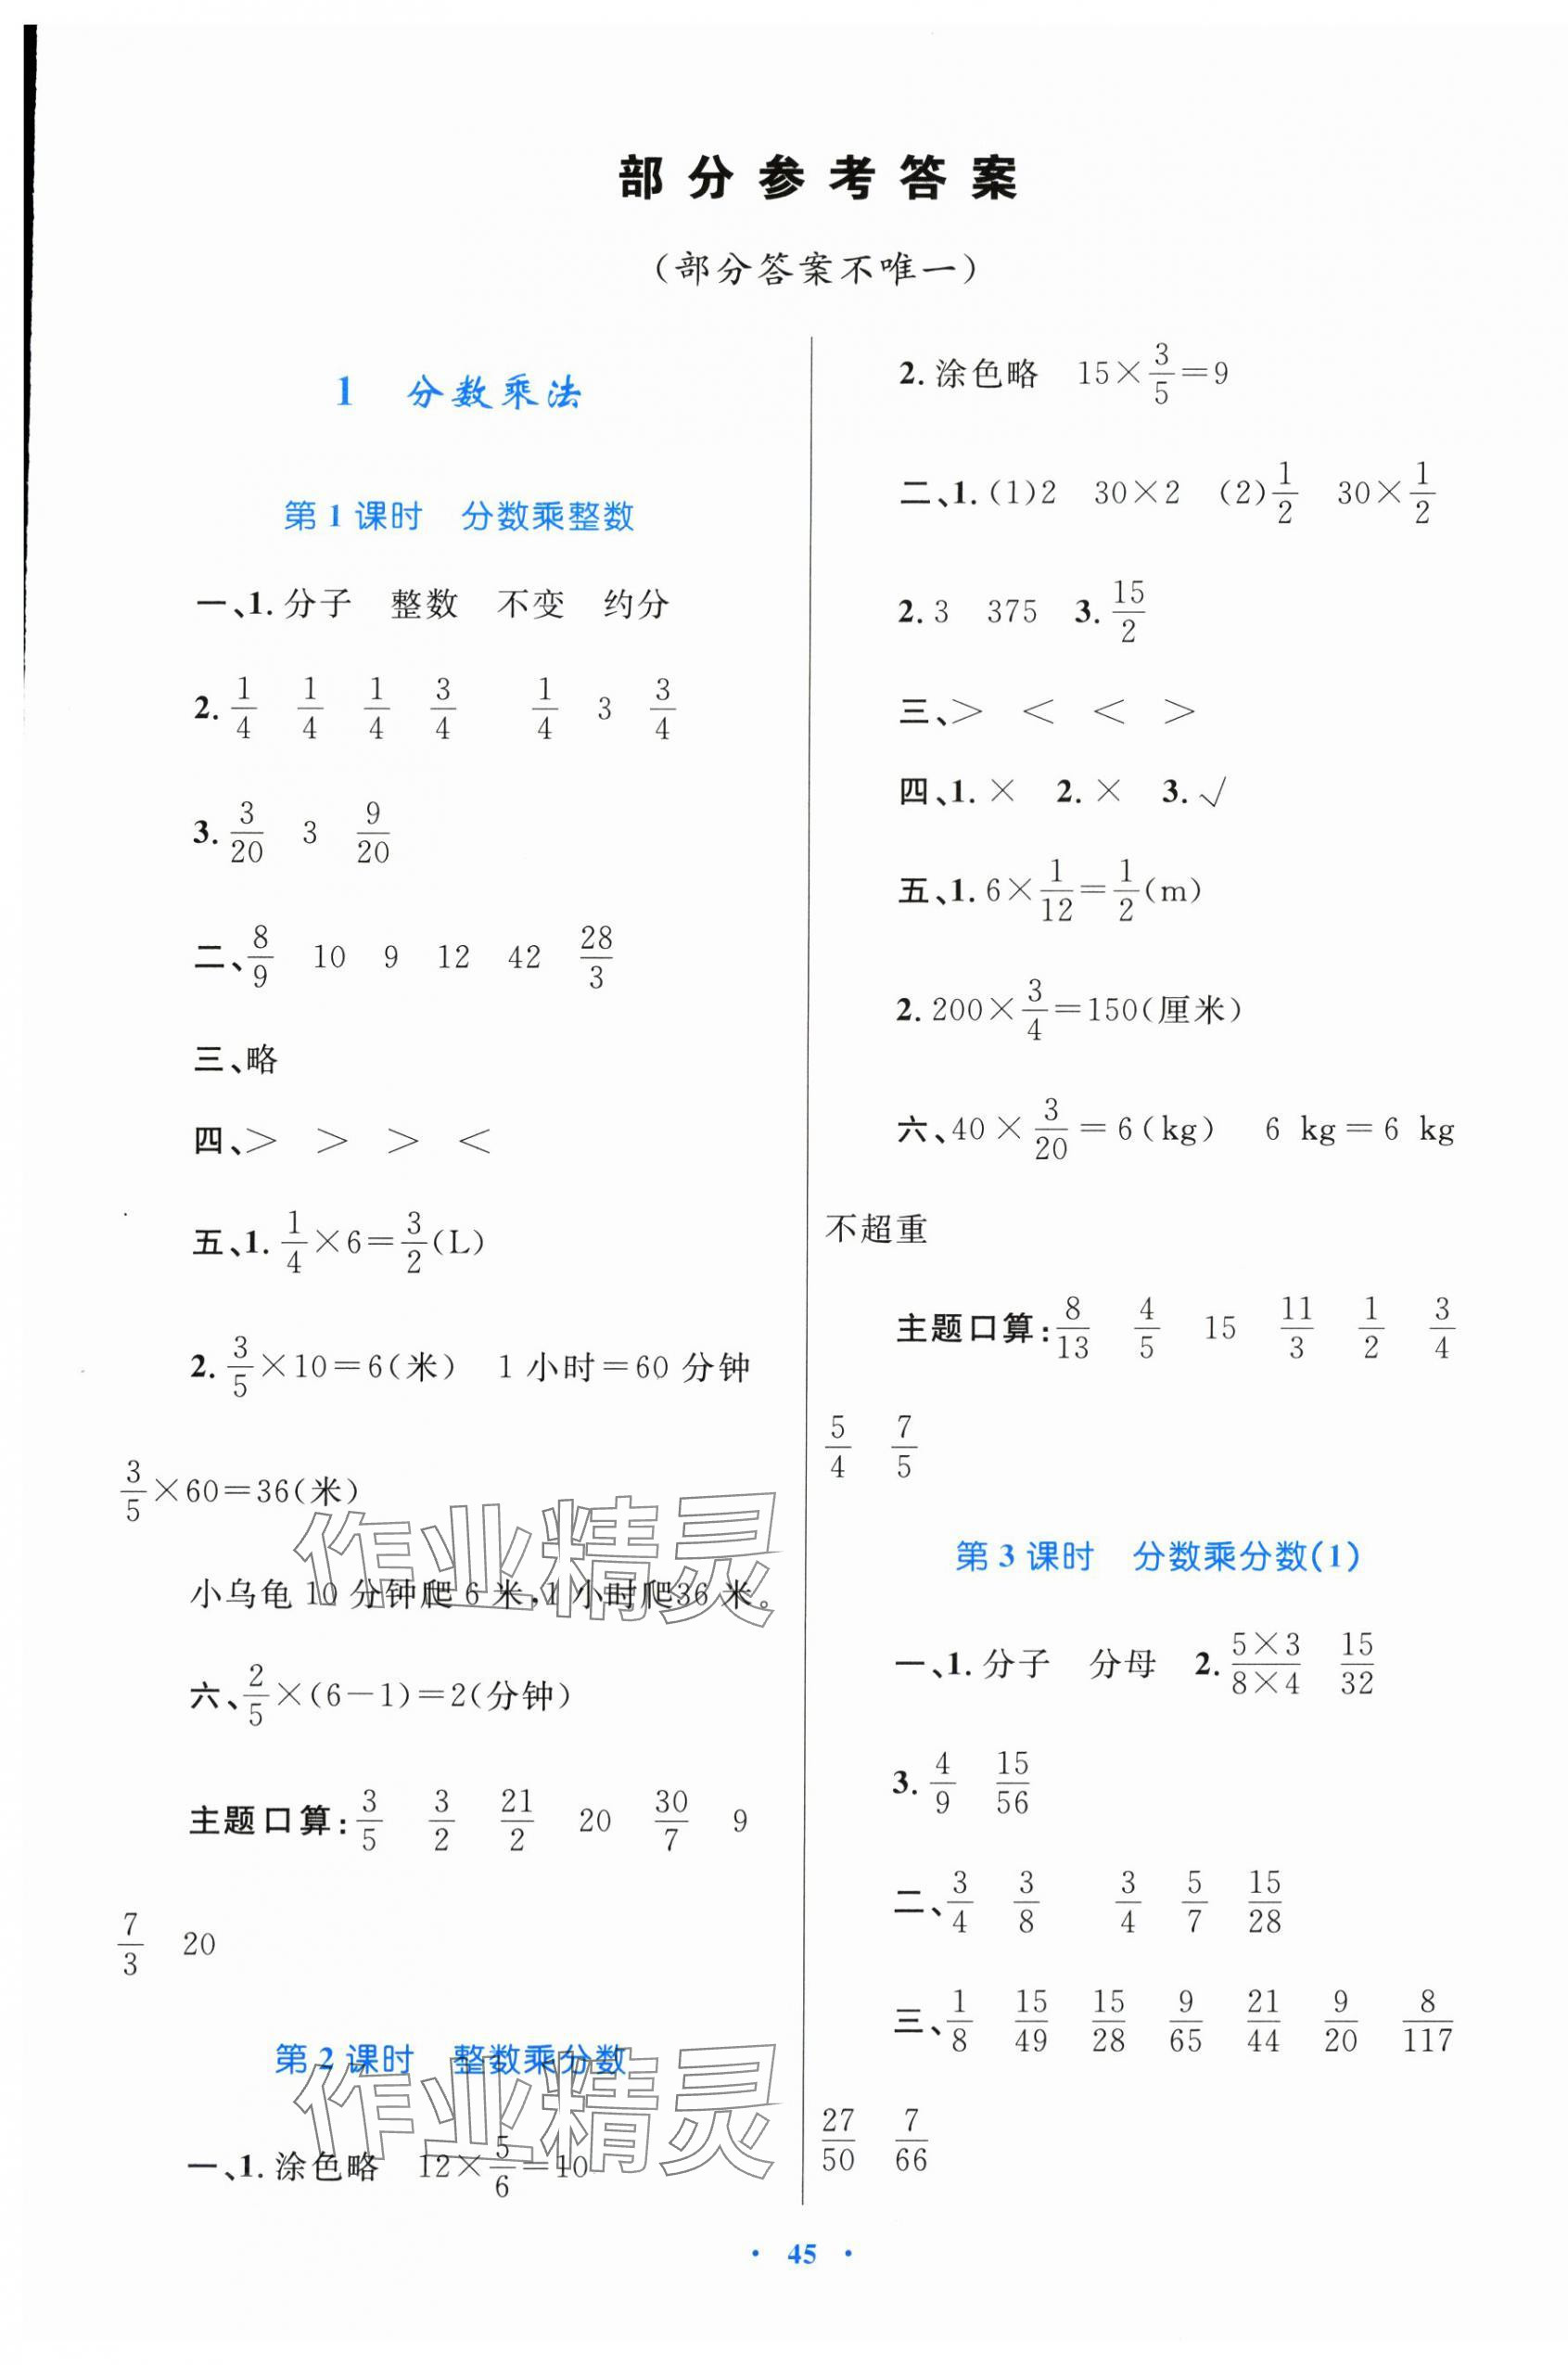 部分参考答案
(部分答案不唯一)
1 分数乘法
第 1 课时 分数乘整数
一、1. 分子 整数 不变 约分
2. 1/4 1/4 1/4 3/4 1/4 3 3/4
3. 3/20 3 9/20
二、8/9 10 9 12 42 28/3
三、略
四、> > > <
五、1. 1/4×6=3/2(L)
2. 3/5×10=6(米) 1 小时=60 分钟
3/5×60=36(米)
小乌龟 10 分钟爬 6 米,1 小时爬 36 米。
六、2/5×(6-1)=2(分钟)
主题口算: 3/5 3/2 21/2 20 30/7 9
7/3 20
第 2 课时 整数乘分数
一、1. 涂色略 12×5/6=10
2. 涂色略 15×3/5=9
二、1. (1)2 30×2 (2)1/2 30×1/2
2. 3 375 3. 15/2
三、> < < >
四、1. × 2. × 3. √
五、1. 6×1/12=1/2(m)
2. 200×3/4=150(厘米)
六、40×3/20=6(kg) 6 kg=6 kg
不超重
主题口算: 8/13 4/5 15 11/3 1/2 3/4
5/4 7/5
第 3 课时 分数乘分数(1)
一、1. 分子 分母 2. 5×3/8×4 15/32
3. 4/9 15/56
二、3/4 3/8 3/4 5/7 15/28
三、1/8 15/49 15/28 9/65 21/44 9/20 8/117
27/50 7/66
· 45 ·
作业精灵
作业精灵